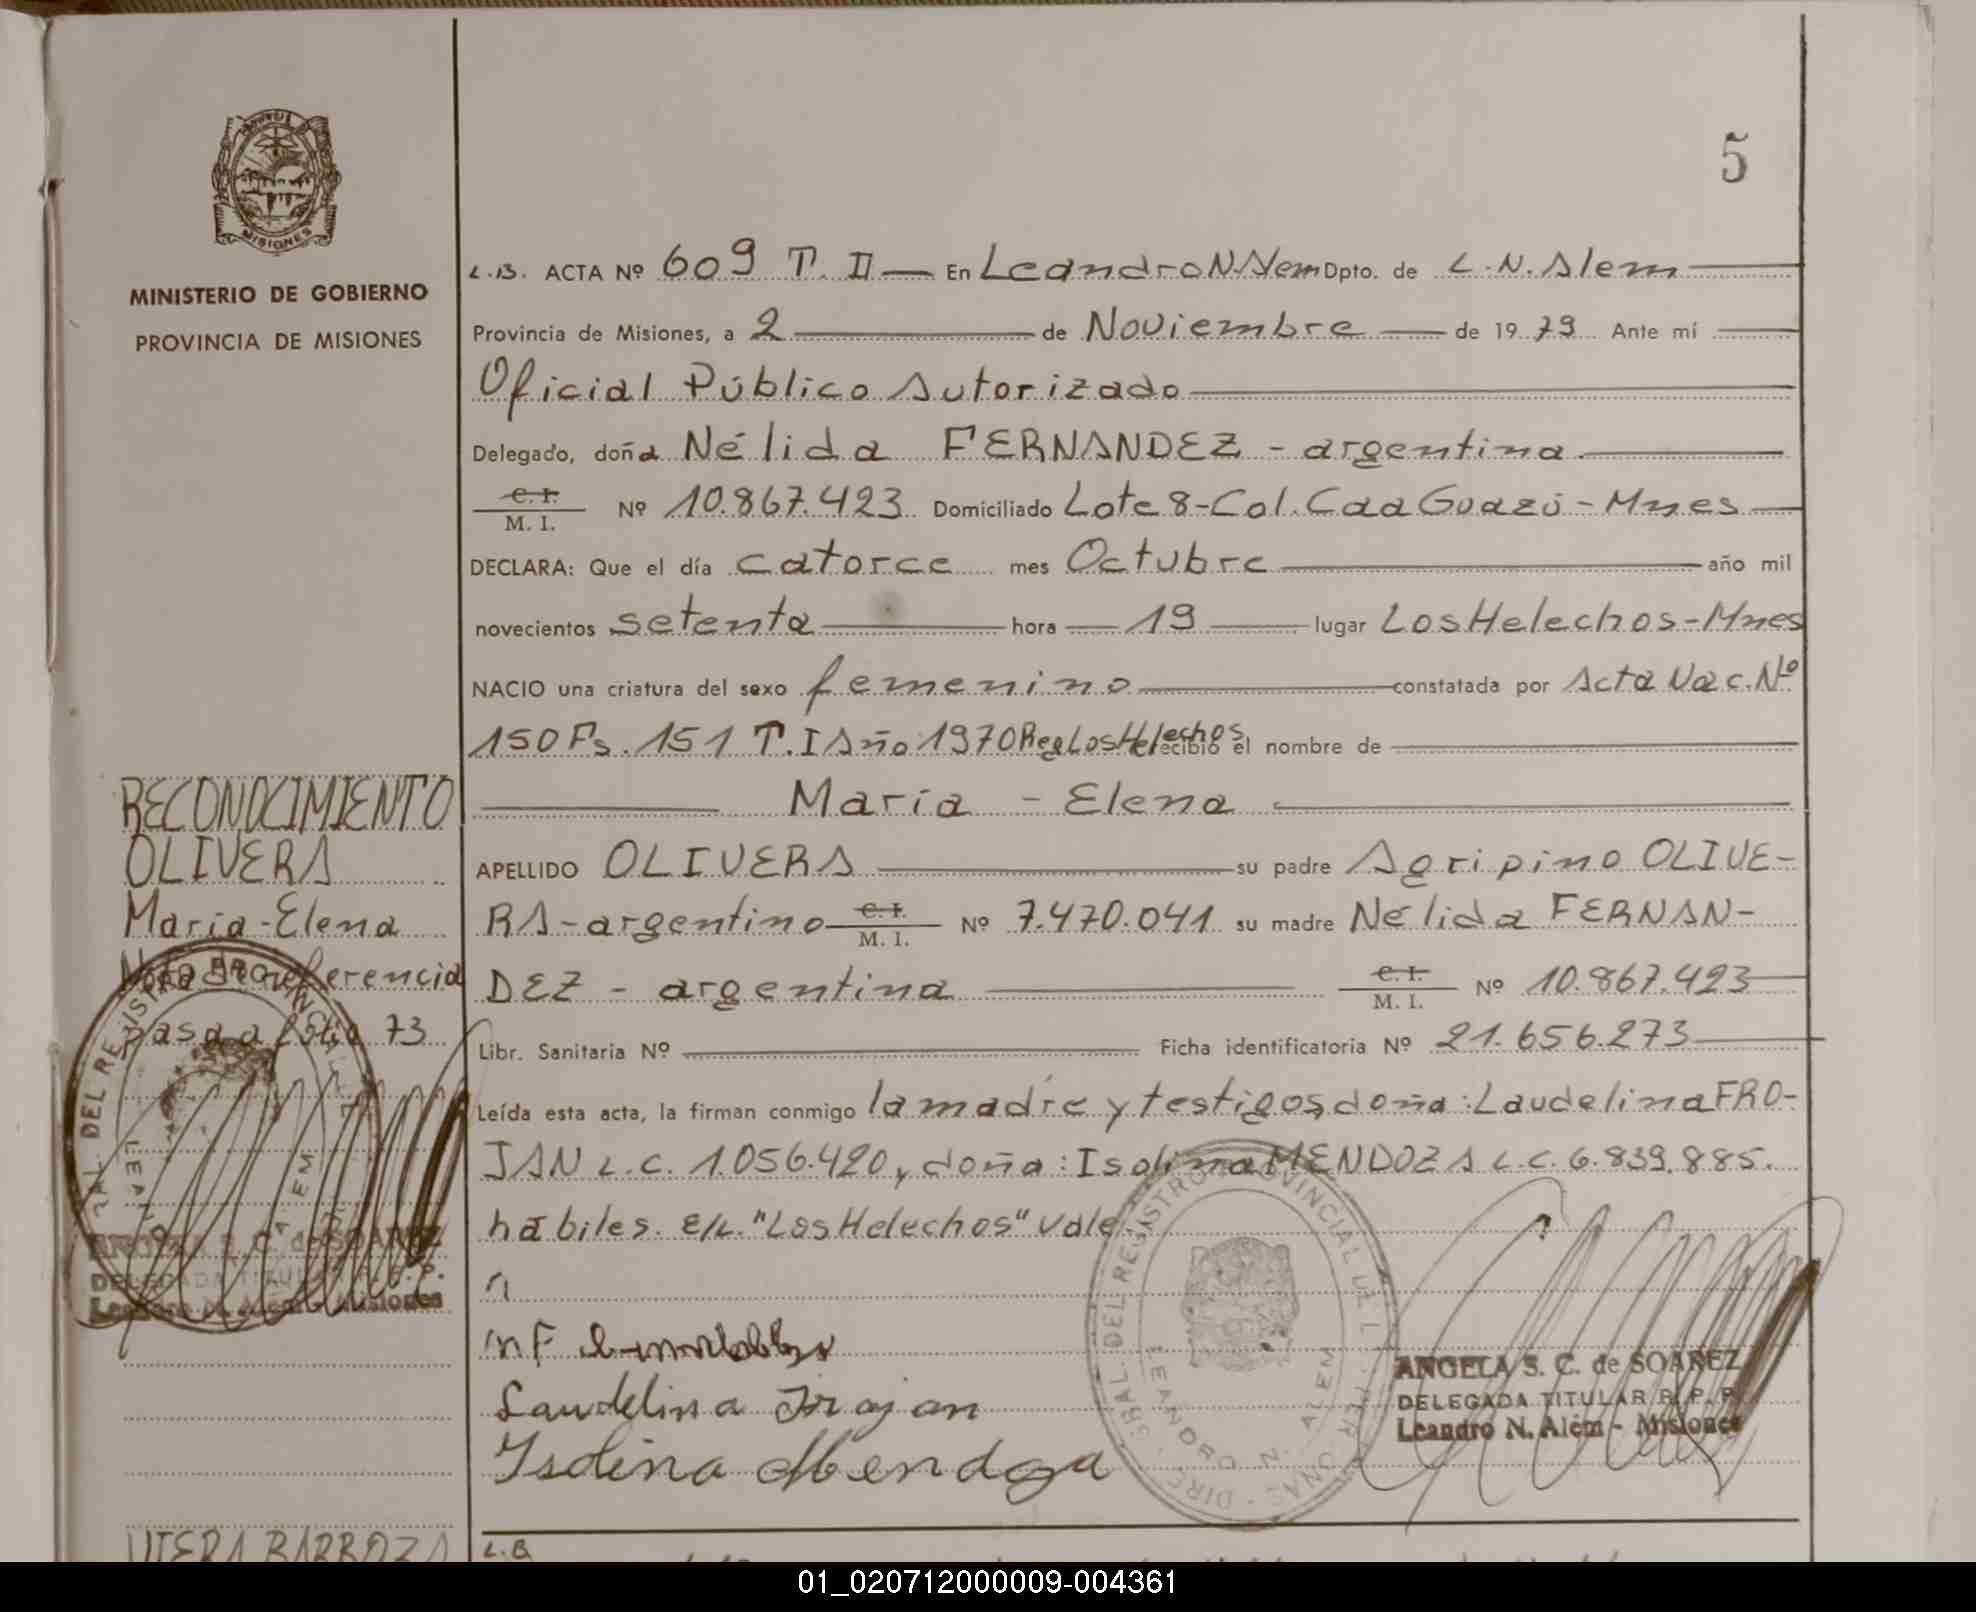 5
MISIONES
MINISTERIO DE GOBIERNO
PROVINCIA DE MISIONES
L.B. ACTA Nº 609 T. II — En Leandro N. Alem Dpto. de L. N. Alem
Provincia de Misiones, a 2 de Noviembre de 1979 Ante mí
Oficial Público Autorizado
Delegado, doña Nélida FERNANDEZ - argentina
C. I. / M. I. Nº 10.867.423 Domiciliado Lote 8-Col. Caa Guazú - Mnes
DECLARA: Que el día catorce mes Octubre año mil
novecientos setenta hora 19 lugar Los Helechos-Mnes
NACIO una criatura del sexo femenino constatada por Acta Nac. Nº
150 Fs. 151 T. I Año 1970 Reg Los Helechos recibió el nombre de
María - Elena
APELLIDO OLIVERA su padre Agripino OLIVE-
RA-argentino C. I. / M. I. Nº 7.470.041 su madre Nélida FERNAN-
DEZ - argentina C. I. / M. I. Nº 10.867.423
Libr. Sanitaria Nº Ficha identificatoria Nº 21.656.273
Leída esta acta, la firman conmigo la madre y testigos, doña: Laudelina FRO-
JAN L.C. 1.056.420, doña: Isolina MENDOZA L.C. 6.839.885.
hábiles. E/L. "Los Helechos" Vale
Laudelina Frojan
Isolina Mendoza
DEL REGISTRO PROVINCIAL DE LAS PERSONAS - DIRE
LEANDRO N. ALEM
ANGELA S. C. de SOAREZ
DELEGADA TITULAR R. P. P.
Leandro N. Alem - Misiones
RECONOCIMIENTO
OLIVERA
María-Elena
Nota de referencia
pasa a folio 73
DEL REGISTRO PROVINCIAL
ANGELA S. C. de SOAREZ
DELEGADA TITULAR R. P. P.
Leandro N. Alem - Misiones
VIERA BARBOZA
L.B
01_020712000009-004361